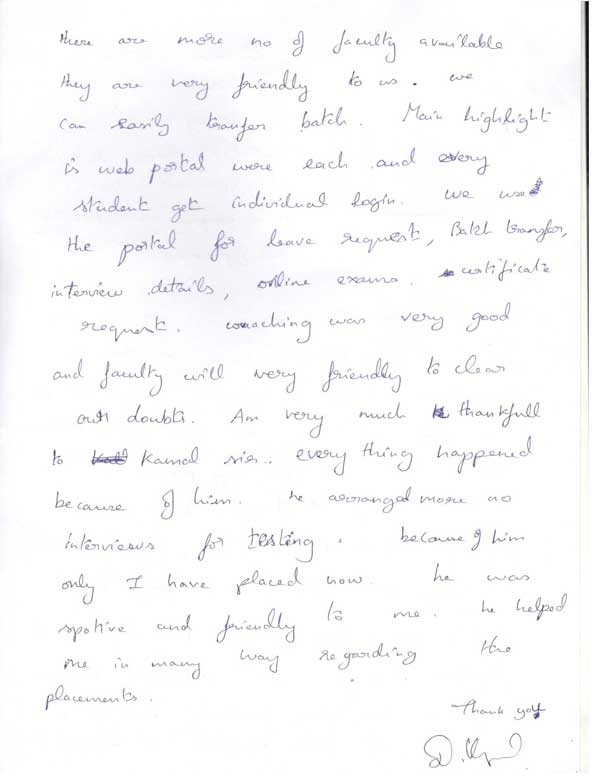 there are more no of faculty available
they are very friendly to us. we
can easily transfer batch. Main highlight
is web portal were each and every
student get individual login. we use
the portal for leave request, Batch transfer,
interview details, online exams. certificate
request. coaching was very good
and faculty will very friendly to clear
our doubts. Am very much thankfull
to Kamal sir.. every thing happened
because of him. he arranged more no
interviews for testing. because of him
only I have placed now. he was
spotive and friendly to me. he helped
me in many way regarding the
placements.
Thank you